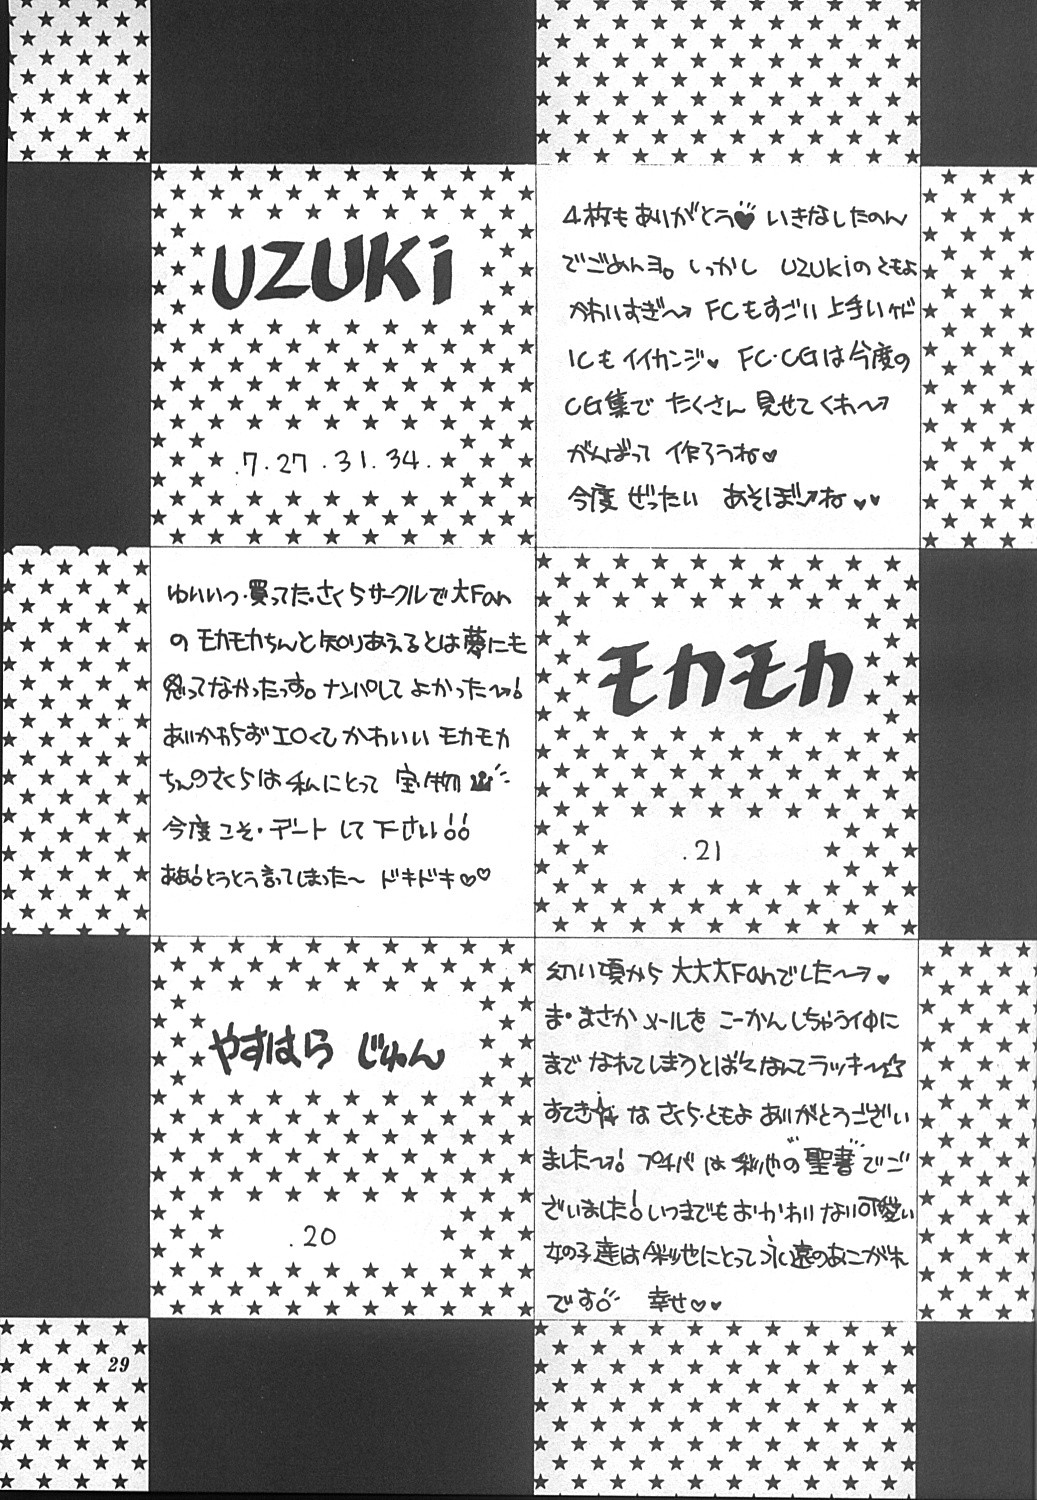 UZUKi
.7.27.31.34.
4枚もありがとう♥ いきなしたのん
でごめんヨ。しっかし UZUKiのともよ
かわいすぎ〜 FCもすごい上手いケド
ICもイイカンジ♥ FC・CGは今度の
CG集で たくさん見せてくれ〜
がんばって 作ろうね♥
今度 ぜったい あそぼーね♥♥
ゆいいつ・買ってた・さくらサークルで大Fan
の モカモカちんと知りあえるとは夢にも
思ってなかったっす。ナンパして よかった〜!
あいかわらず エロくて かわいい モカモカ
ちんのさくらは 私にとって 宝物
今度こそ・デート して下さい!!
ああ!とうとう言ってしまった〜 ドキドキ♡♡
モカモカ
.21
やすはら じゅん
.20
幼い頃から 大大大Fanでした〜♥
ま・まさか メールを こーかんしちゃう仲に
まで なれてしまうとは なんてラッキ〜☆
すてき☆な さくら・ともよ ありがとうござい
ました〜! プチパは 彩也の"聖書"でご
ざいました!いつまでもおかわりない可愛い
女の子達は 彩也にとって永遠のあこがれ
です。 幸せ♡♥
29